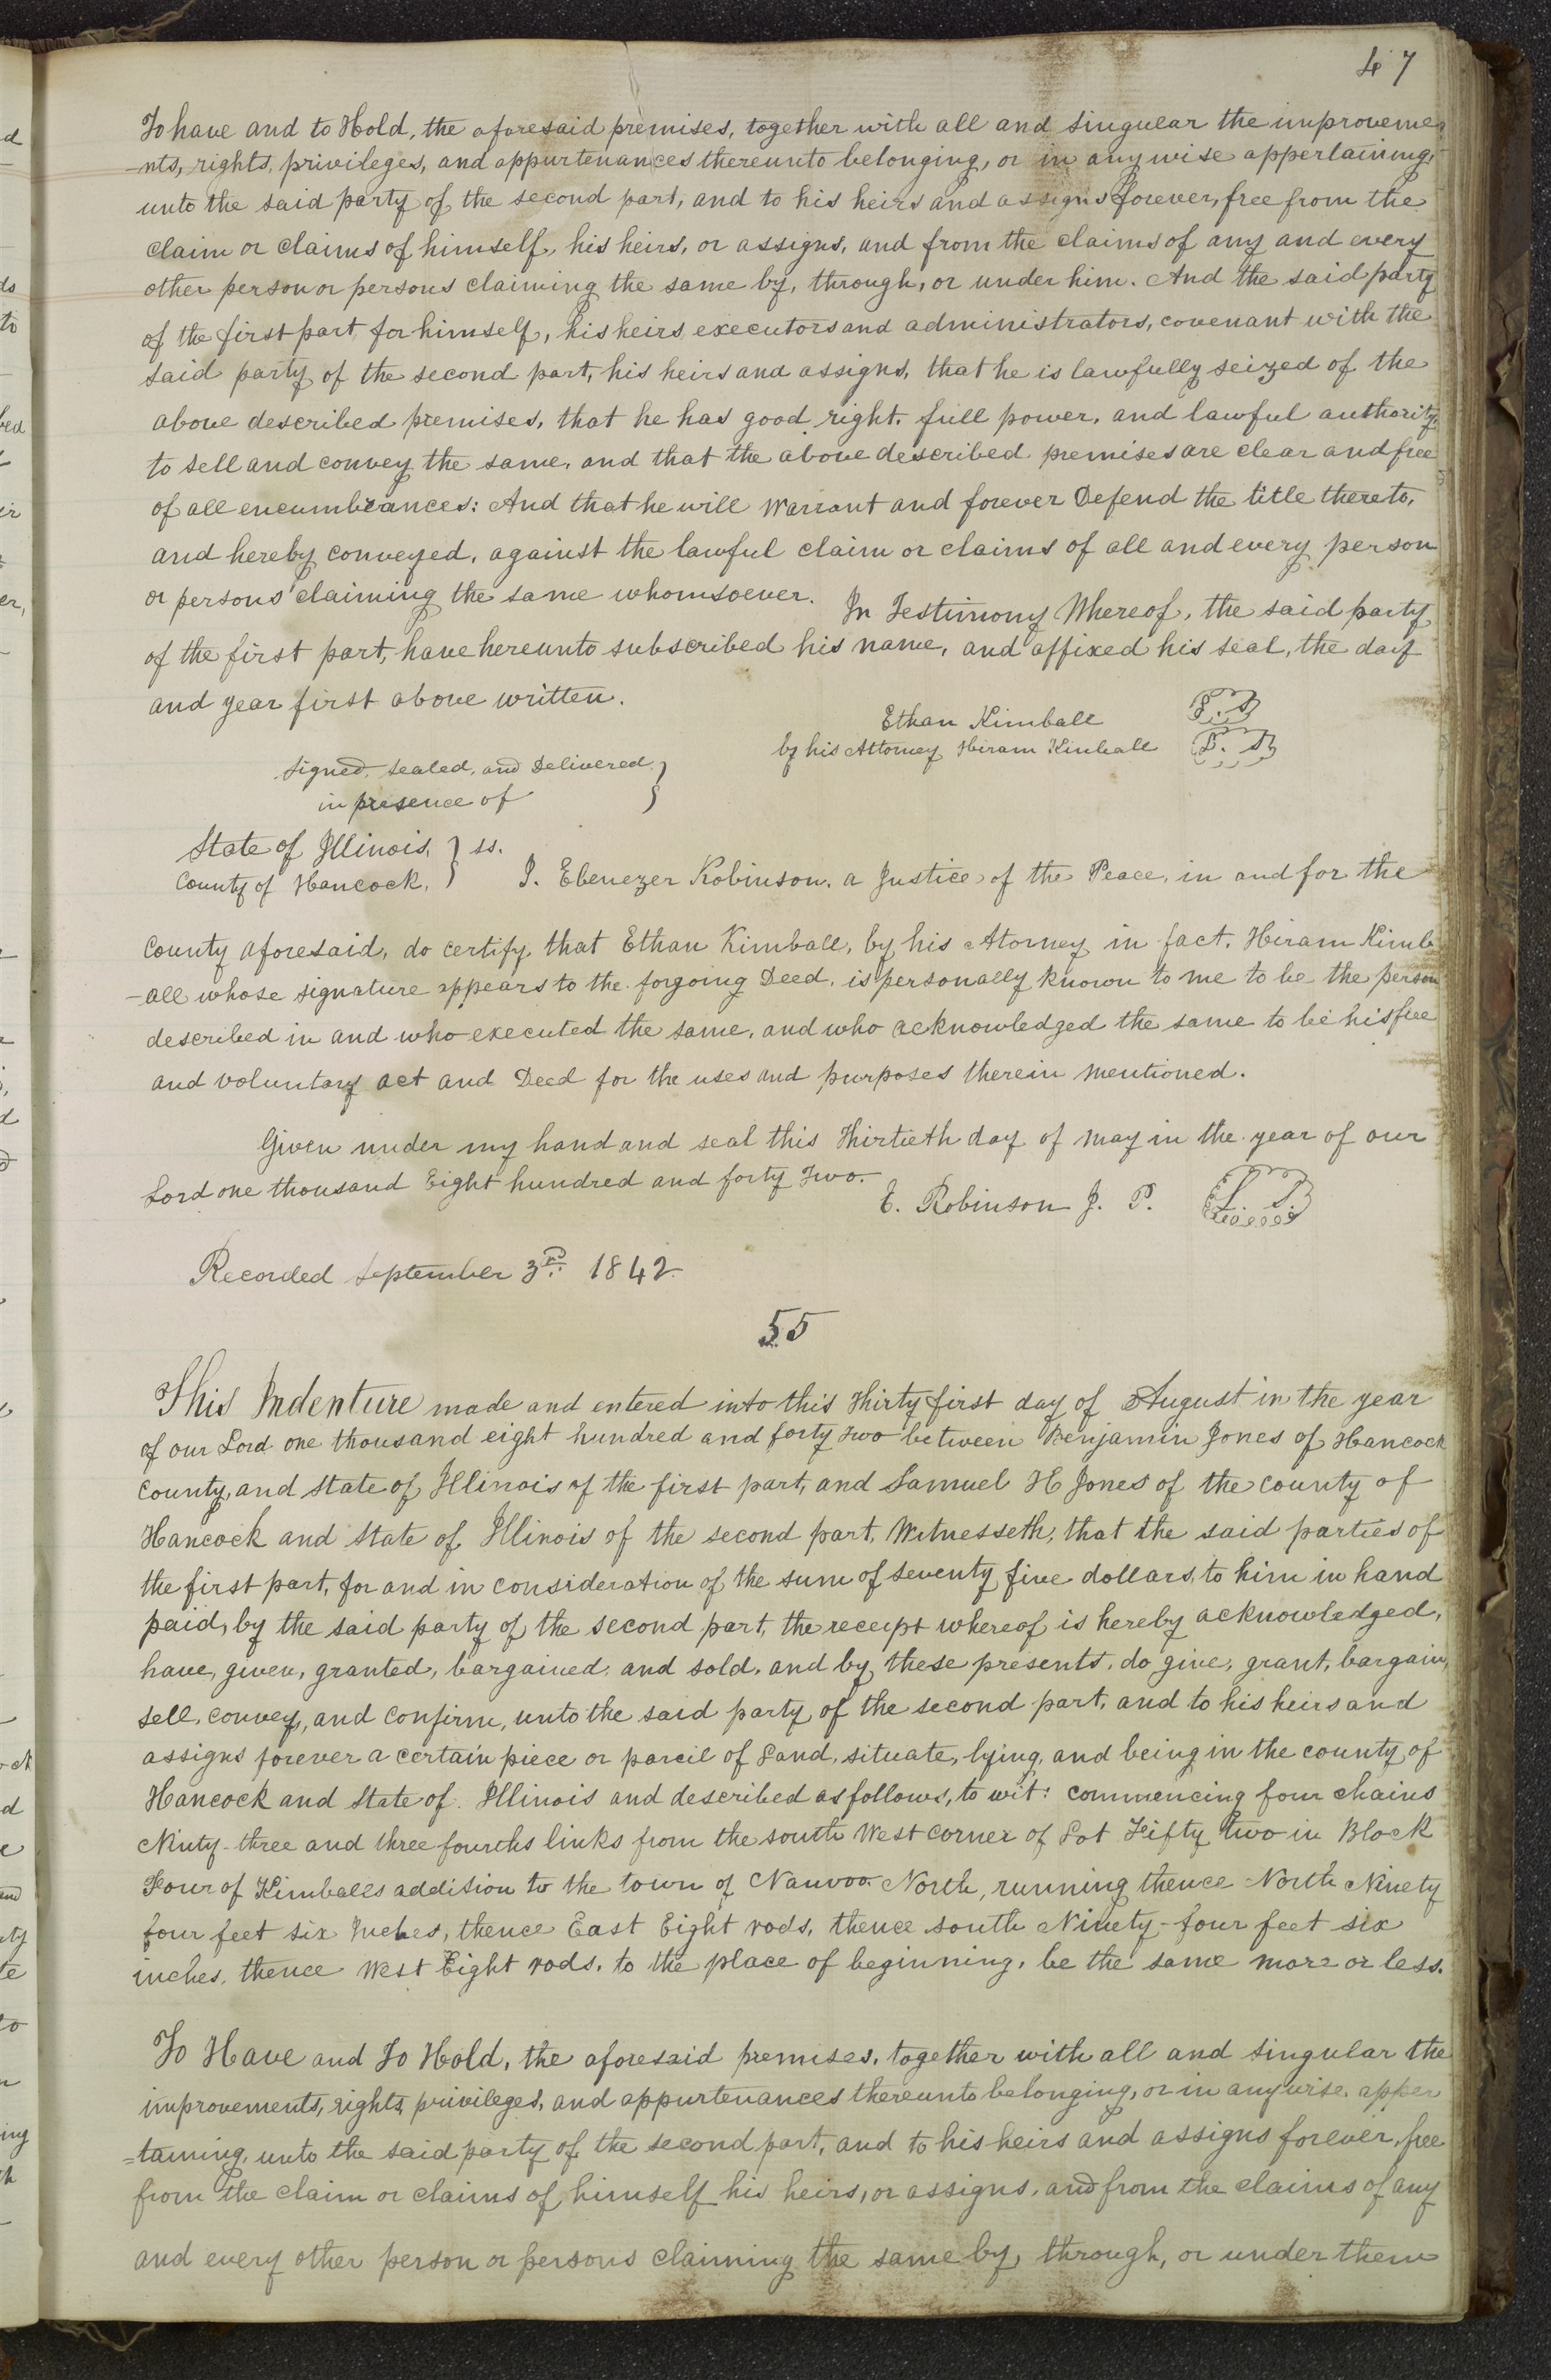 47
To have and to Hold, the aforesaid premises, together with all and singular the improveme
-nts, rights, privileges, and appurtenances thereunto belonging, or in any wise appertaining,
unto the said party of the second part, and to his heirs and assigns forever, free from the
claim or claims of himself, his heirs, or assigns, and from the claims of any and every
other person or persons claiming the same by, through, or under him. And the said party
of the first part for himself, his heirs executors and administrators, covenant with the
said party of the second part, his heirs and assigns, that he is lawfully seized of the
above described premises, that he has good right, full power, and lawful authority
to sell and convey the same, and that the above described premises are clear and free
of all encumbrances: And that he will Warrant and forever Defend the title thereto,
and hereby conveyed, against the lawful claim or claims of all and every person
or persons claiming the same whomsoever. In Testimony Whereof, the said party
of the first part, have hereunto subscribed his name, and affixed his seal, the day
and year first above written.
Ethan Kimball L. S
by his Attorney Hiram Kimball L. S
Signed, sealed, and Delivered }
in presence of
State of Illinois, } ss.
County of Hancock, } I. Ebenezer Robinson, a Justice of the Peace, in and for the
County aforesaid, do certify, that Ethan Kimball, by his Atorney in fact, Hiram Kimb
-all whose signature appears to the forgoing Deed, is personally known to me to be the person
described in and who executed the same, and who acknowledged the same to be his free
and voluntary act and Deed for the uses and purposes therein mentioned.
Given under my hand and seal this Thirtieth day of may in the year of our
Lord one thousand Eight hundred and forty Two.
E. Robinson J. P. L. S.
Recorded September 3rd. 1842.
55
This Indenture made and entered into this Thirty first day of August in the year
of our Lord one thousand eight hundred and forty two between Benjamin Jones of Hancock
County, and State of Illinois of the first part, and Samuel H Jones of the county of
Hancock and State of Illinois of the second part, Witnesseth, that the said parties of
the first part, for and in consideration of the sum of seventy five dollars, to him in hand
paid, by the said party of the second part, the receipt whereof is hereby acknowledged,
have, given, granted, bargained, and sold, and by these presents, do give, grant, bargain,
sell, convey, and confirm, unto the said party of the second part, and to his heirs and
assigns forever a certain piece or parcil of Land, situate, lying, and being in the county of
Hancock and State of Illinois and described as follows, to wit: commencing four chains
Ninty-three and three fourths links from the south West corner of Lot Fifty two in Block
Four of Kimballs addition to the town of Nauvoo North, running thence North Ninety
four feet six Inches, thence East Eight rods, thence south Ninety-four feet six
inches, thence West Eight rods, to the place of beginning, be the same more or less.
To Have and To Hold, the aforesaid premises, together with all and singular the
improvements, rights, privileges, and appurtenances thereunto belonging, or in any wise apper
=taining, unto the said party of the second part, and to his heirs and assigns forever, free
from the claim or claims of himself his heirs, or assigns, and from the claims of any
and every other person or persons claiming the same by, through, or under them